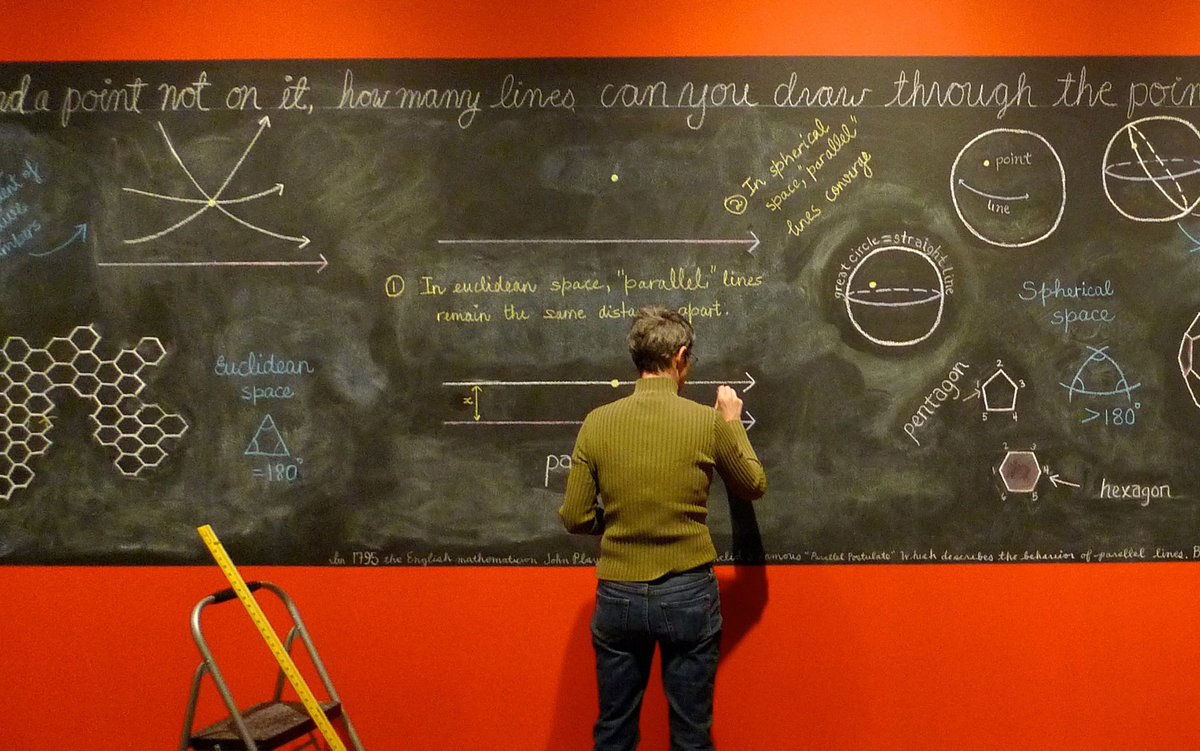 a point not on it, how many lines can you draw through the
② In spherical
space, "parallel"
lines converge
point
line
great circle = straight line
① In euclidean space, "parallel" lines
remain the same apart.
x
Euclidean
space
=180°
Spherical
space
>180°
pentagon
1
2
3
4
5
hexagon
1
2
3
4
5
6
In 1795 the English mathematician John "Parallel Postulate" which describes the behavior of parallel lines.